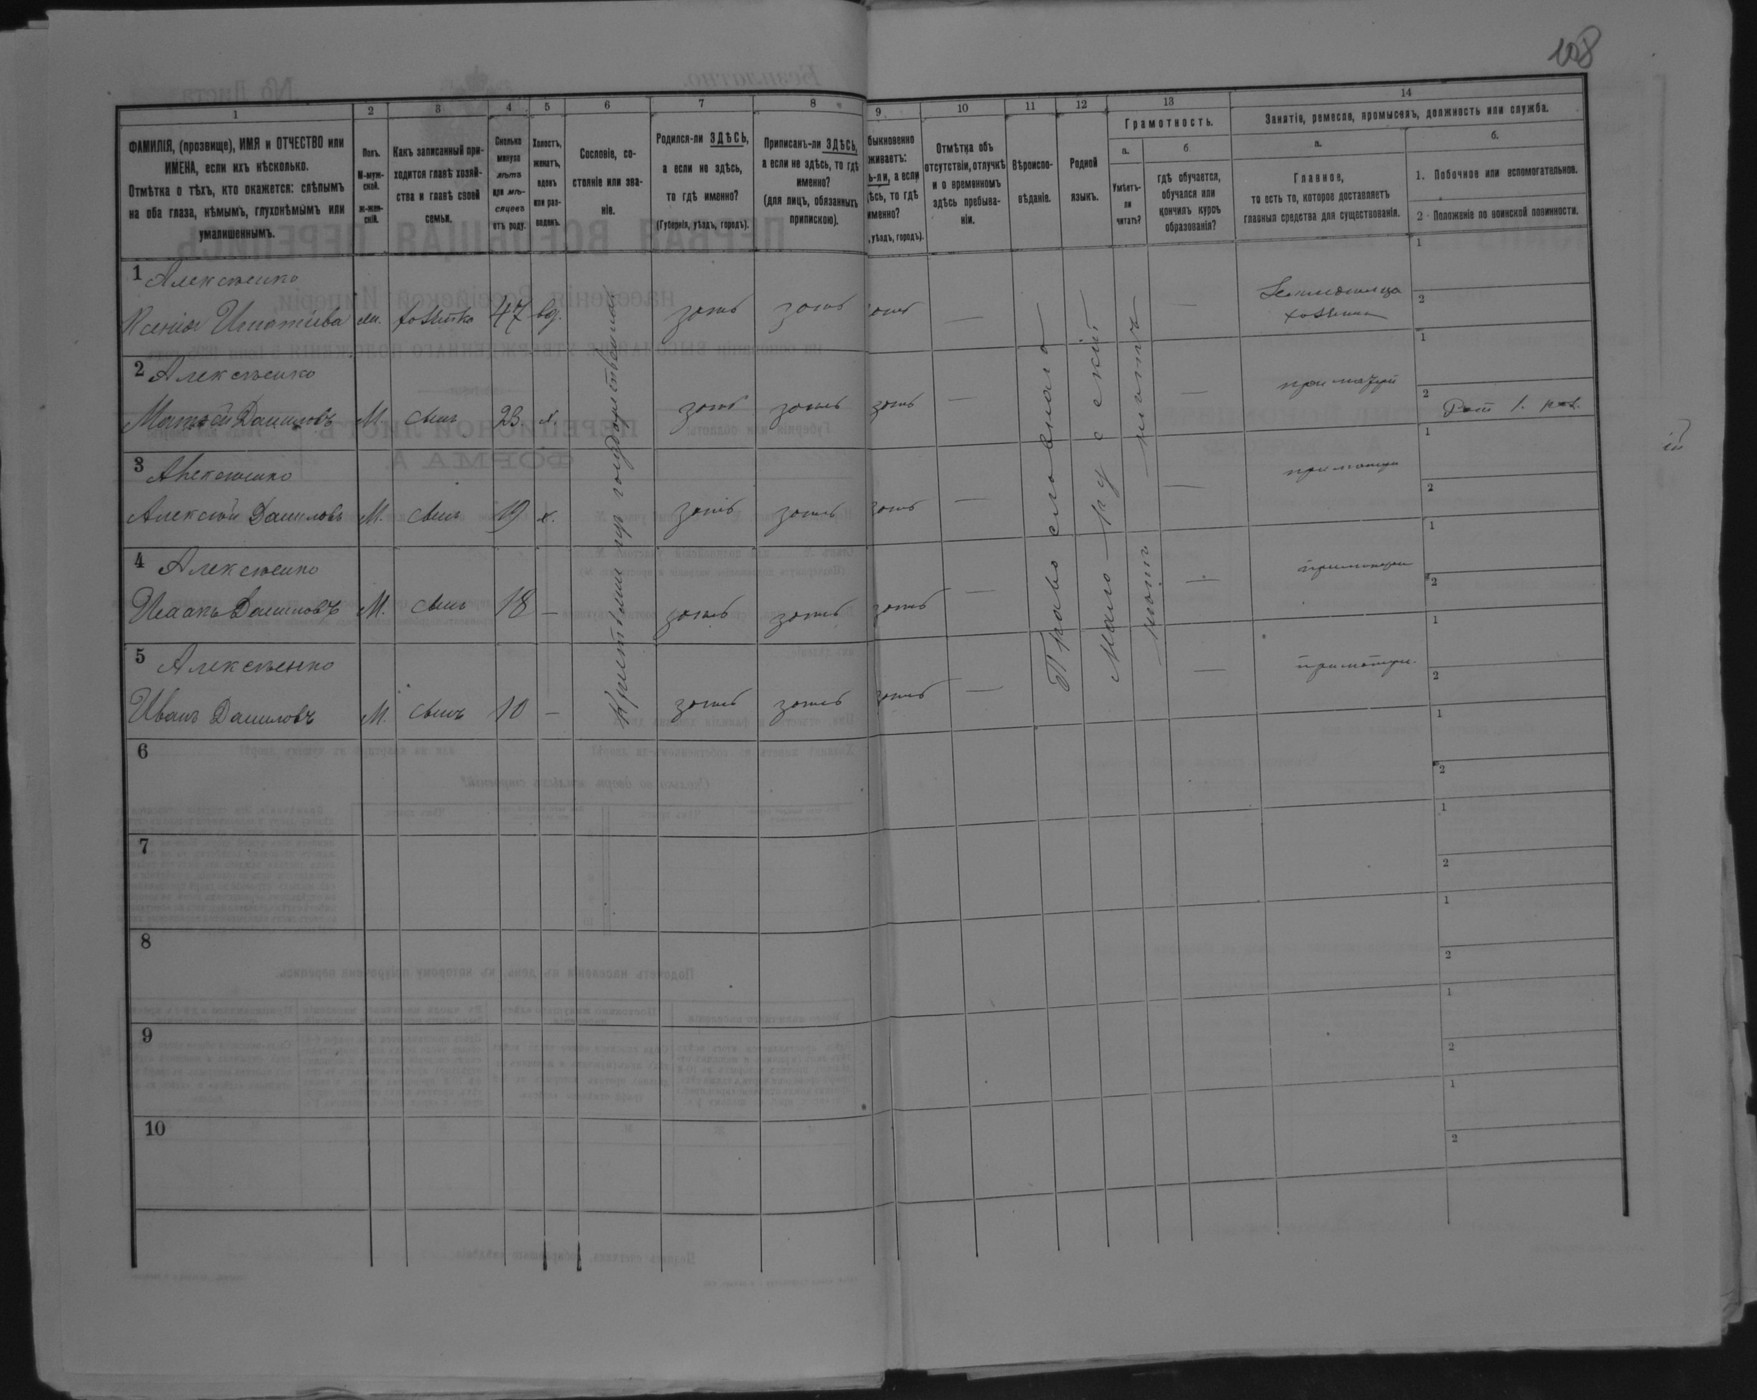 108
1 2 3 4 5 6 7 8 9 10 11 12 13 14
ФАМИЛІЯ, (прозвище), ИМЯ и ОТЧЕСТВО или
ИМЕНА, если ихъ нѣсколько.
Отмѣтка о тѣхъ, кто окажется: слѣпымъ
на оба глаза, нѣмымъ, глухонѣмымъ или
умалишеннымъ.
Полъ.
М-муж-
ской.
ж-жен-
скій.
Какъ записанный при-
ходится главѣ хозяй-
ства и главѣ своей
семьи.
Сколько
минуло
лѣтъ
или мѣ-
сяцевъ
отъ роду.
Холостъ,
женатъ,
вдовъ
или раз-
веденъ.
Сословіе, со-
стояніе или зва-
ніе.
Родился-ли ЗДѢСЬ,
а если не здѣсь,
то гдѣ именно?
(Губернія, уѣздъ, городъ).
Приписанъ-ли ЗДѢСЬ,
а если не здѣсь, то гдѣ
именно?
(для лицъ, обязанныхъ
припискою).
быкновенно
живаетъ:
ь-ли, а если
ѣсь, то гдѣ
именно?
, уѣздъ, городъ).
Отмѣтка объ
отсутствіи, отлучкѣ
и о временномъ
здѣсь пребыва-
ніи.
Вѣроиспо-
вѣданіе.
Родной
языкъ.
Грамотность.
а.
Умѣетъ-
ли
читать?
б.
гдѣ обучается,
обучался или
кончилъ курсъ
образованія?
Занятіе, ремесло, промыселъ, должность или служба.
а.
Главное,
то есть то, которое доставляетъ
главныя средства для существованія.
б.
1. Побочное или вспомогательное.
2. Положеніе по воинской повинности.
1 Алексѣенко
Ксенія Игнатіева жн. хозяйка 47 вд. здѣсь здѣсь здѣсь — — 1 2
хозяйка
2 Алексѣенко
Матвѣй Даниловъ М. сынъ 23 х. здѣсь здѣсь здѣсь — — при матери 1 2
Рат. 1.
3 Алексѣенко
Алексѣй Даниловъ М. сынъ 19 х. здѣсь здѣсь здѣсь — — при матери 1 2
4 Алексѣенко
Исаакъ Даниловъ М. сынъ 18 — здѣсь здѣсь здѣсь — — при матери 1 2
5 Алексѣенко
Иванъ Даниловъ М. сынъ 10 — здѣсь здѣсь здѣсь — — при матери 1 2
Православная
Мало-русскій
6 1 2
7 1 2
8 1 2
9 1 2
10 1 2